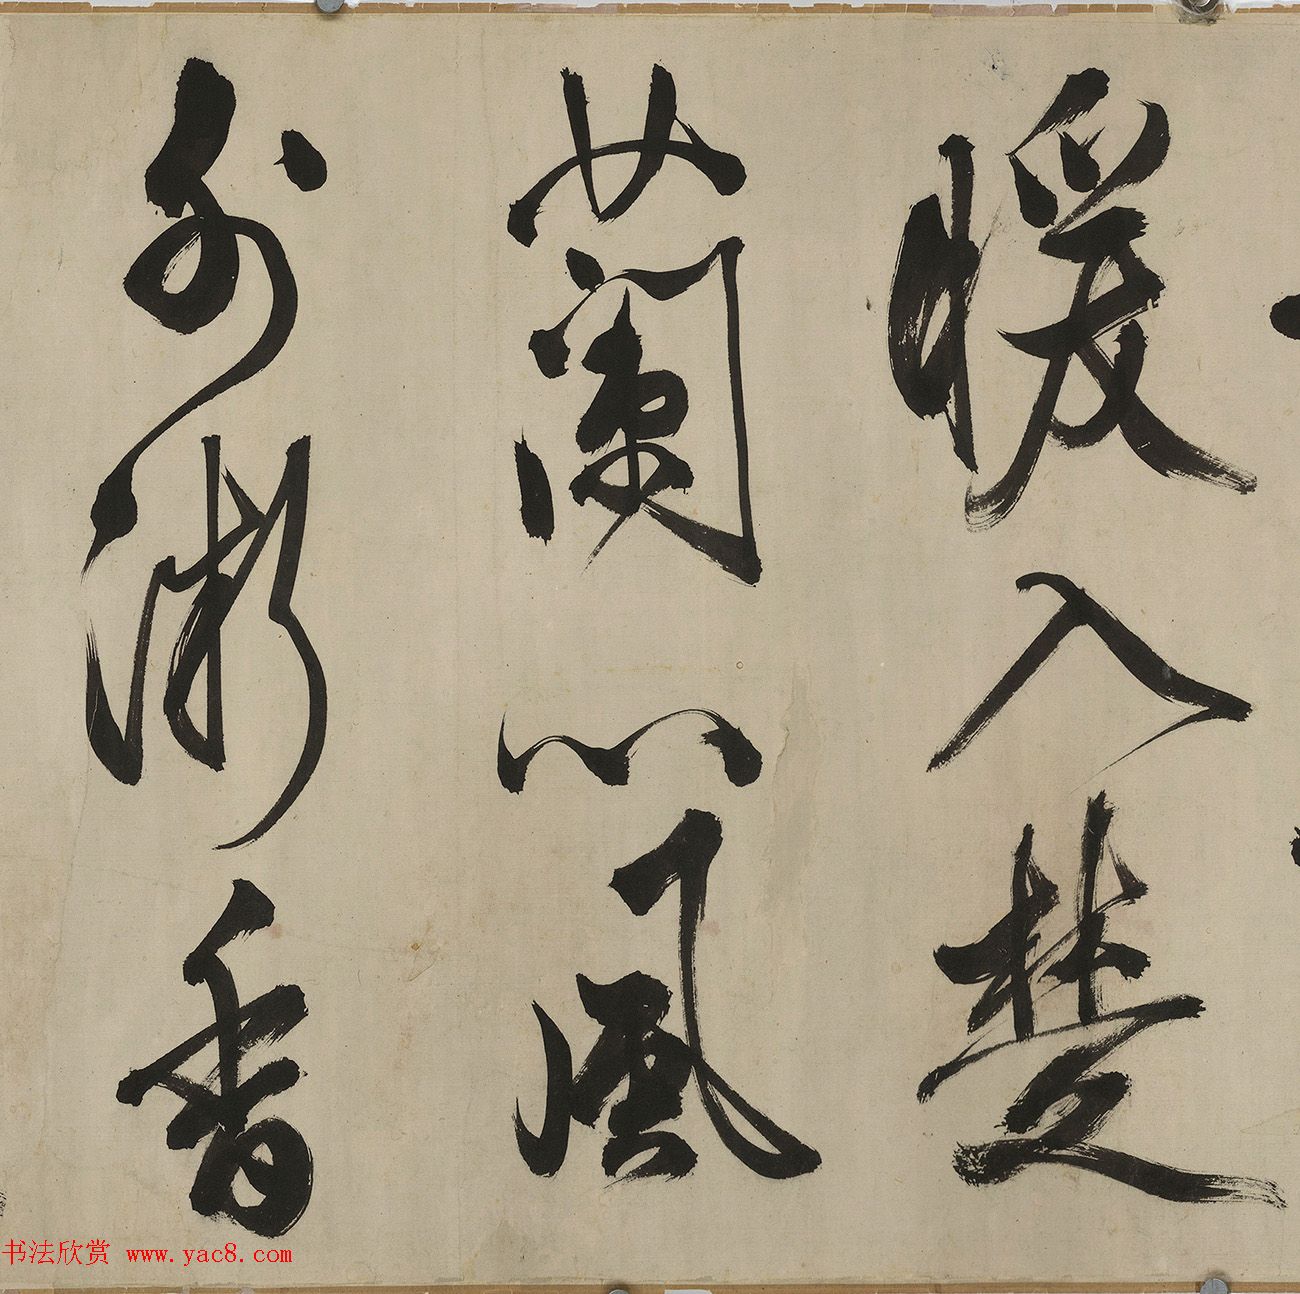 暖入楚
蘭心風
漸香
書法欣赏 www.yac8.com